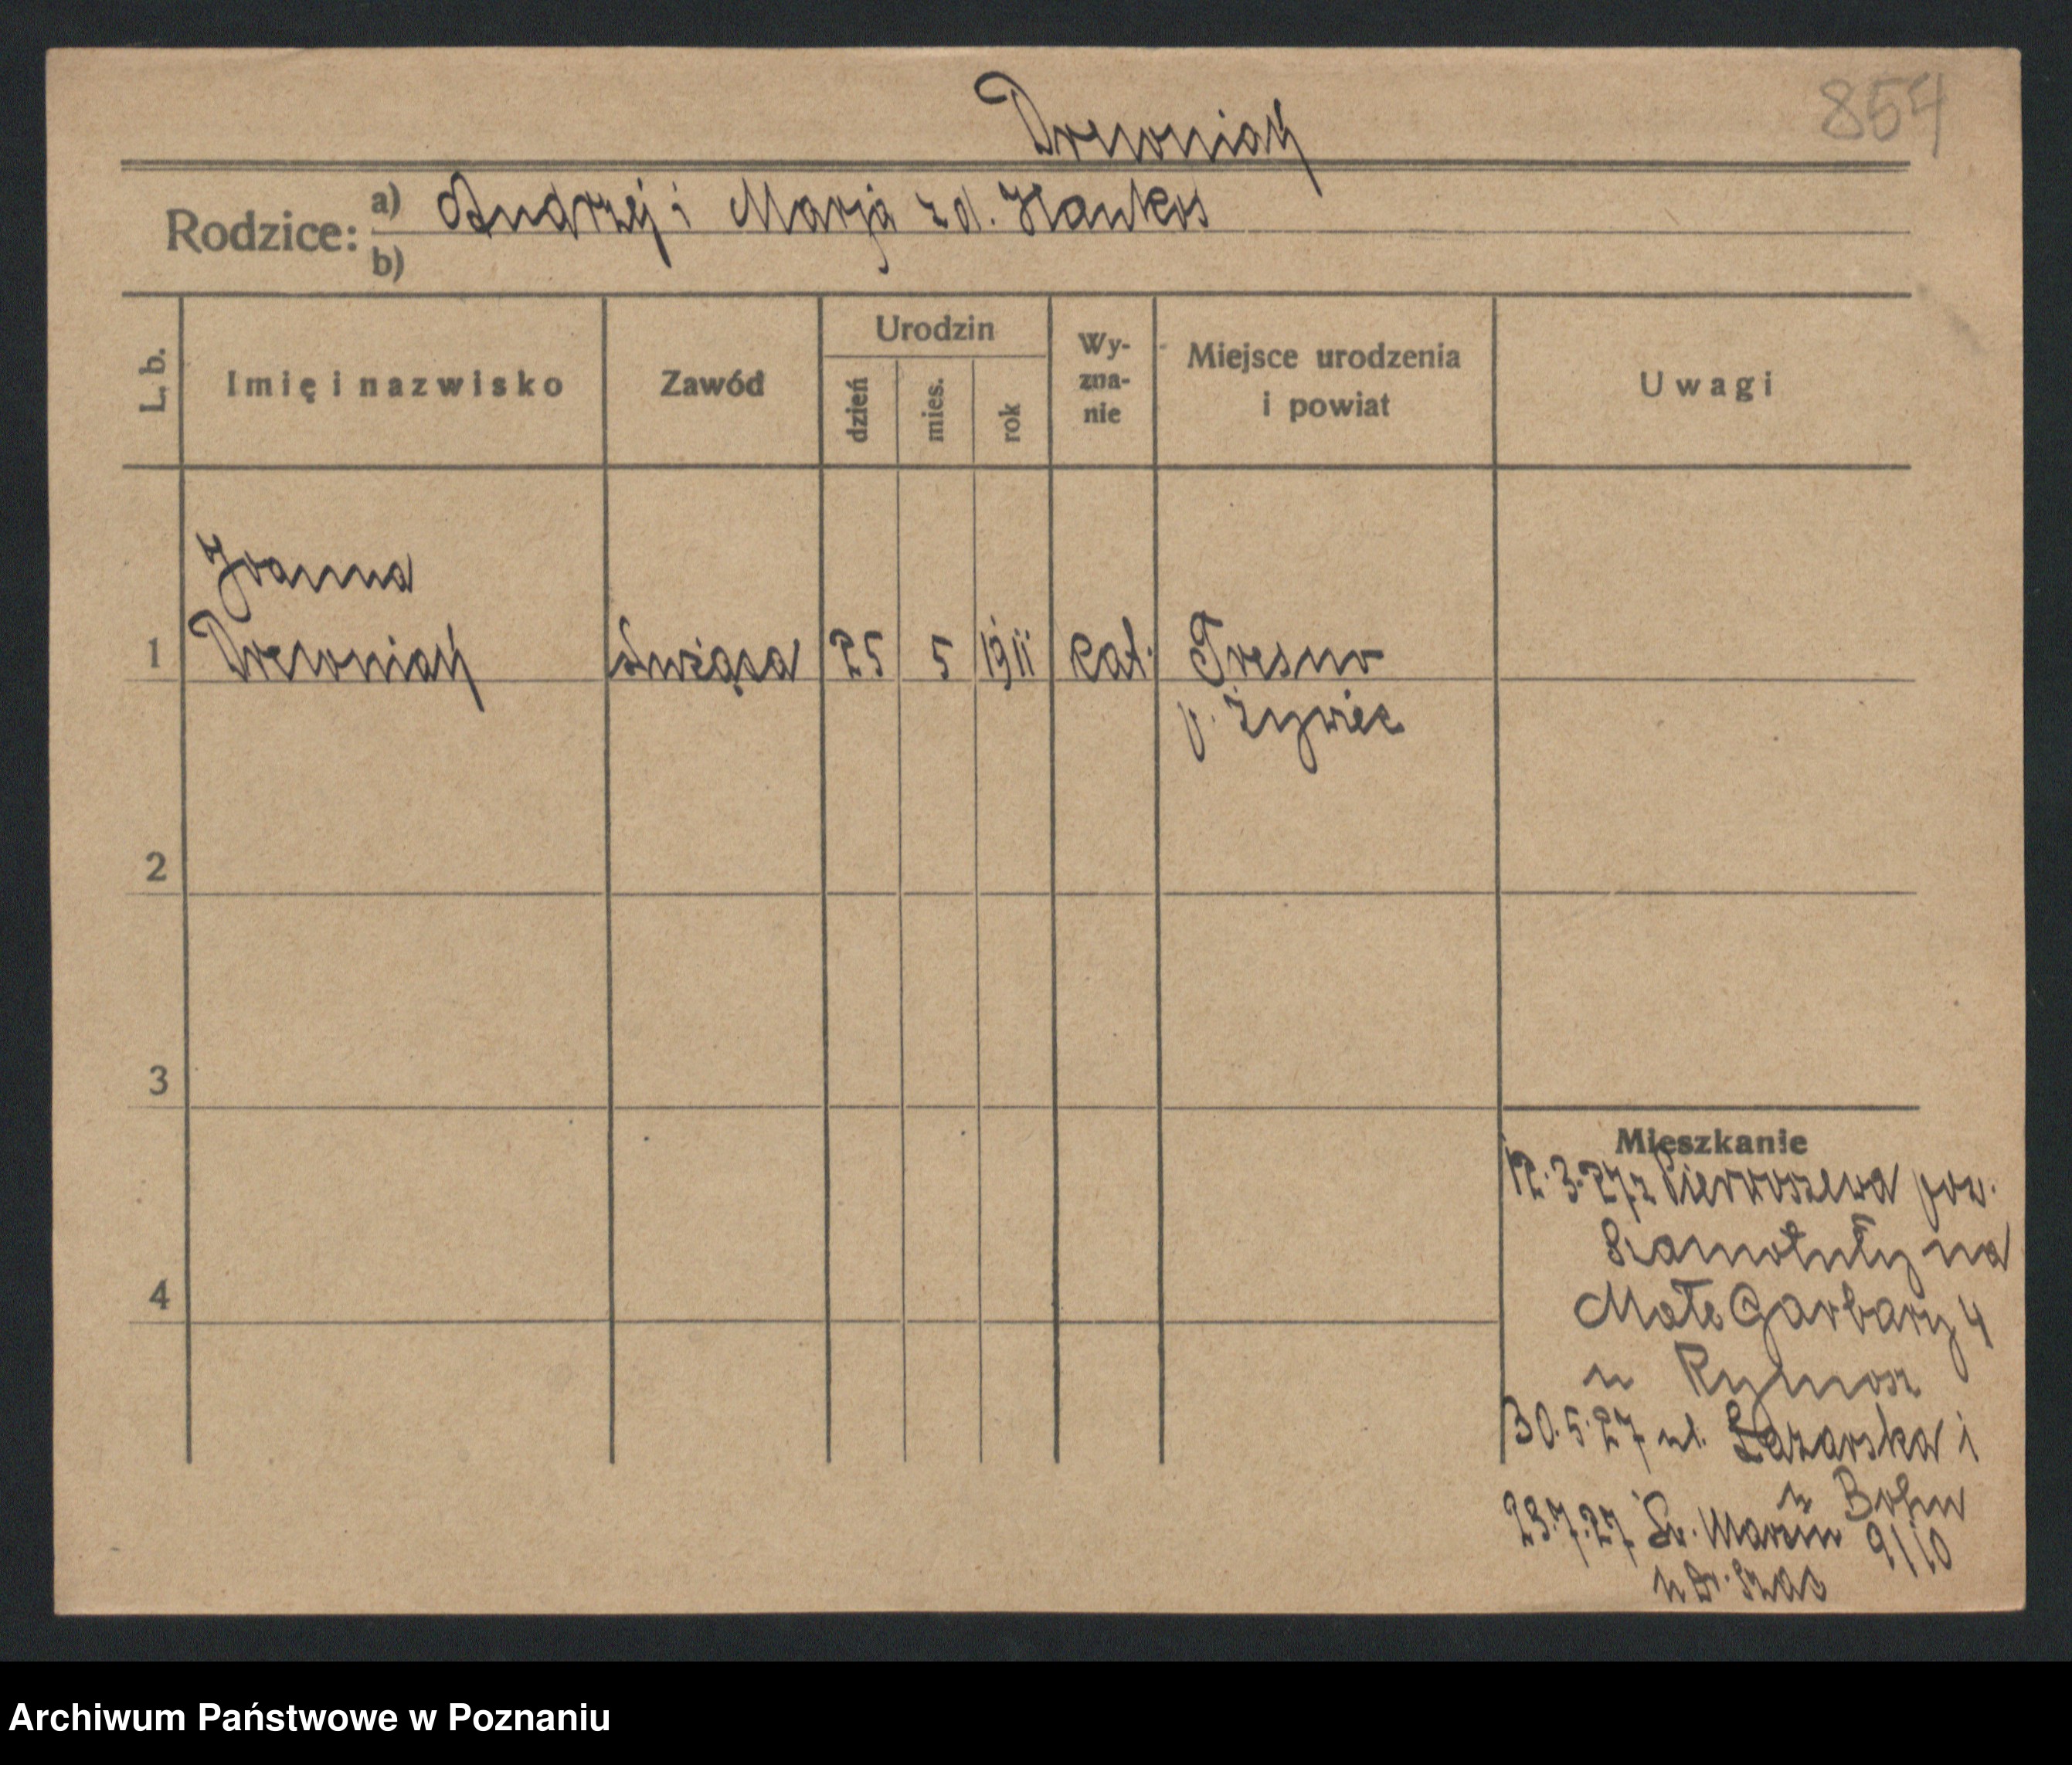 854
Drewniań
Rodzice: a) Andrzej i Marja z d. Hankus
b)
L. b.
Imię i nazwisko
Zawód
Urodzin
dzień
mies.
rok
Wy-
zna-
nie
Miejsce urodzenia
i powiat
Uwagi
Joanna
1 Drewniań służąca 25 5 1911 kat. Tresno
p. Żywiec
2
3
4
Mieszkanie
12.3.27 z Pierwoszewa pow.
Szamotuły na
Małe Garbary 4
u
30.5.27 ul. Łazarska 1
u Bohn
23.7.27 Św. Marcin 9/10
u Dr.
Archiwum Państwowe w Poznaniu